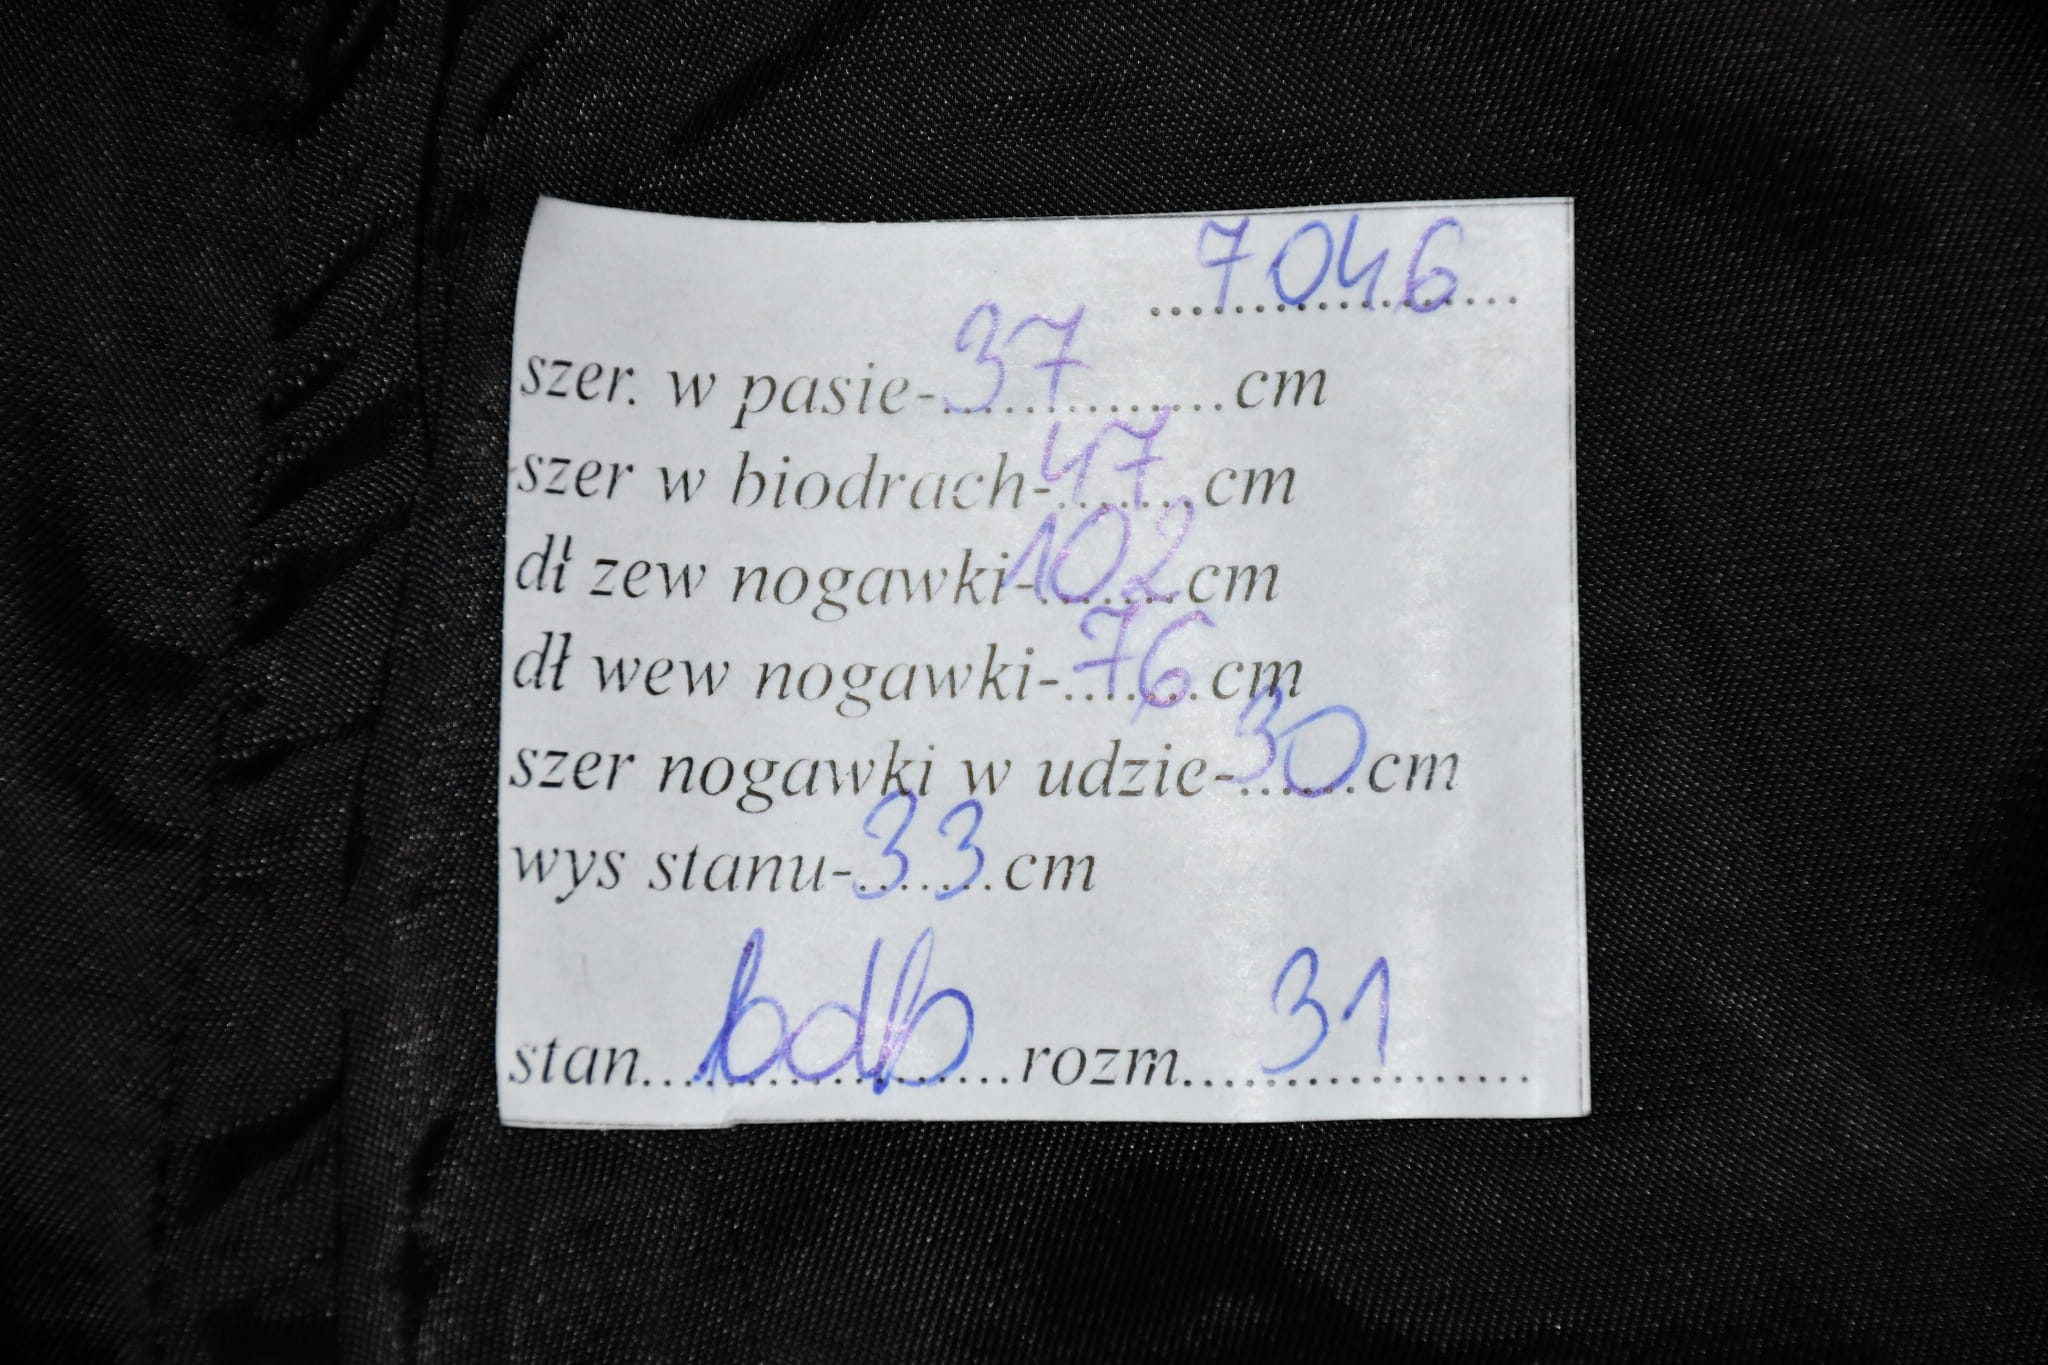 7046
szer. w pasie-37..............cm
szer w biodrach-47.......cm
dł zew nogawki-102.......cm
dł wew nogawki-76.......cm
szer nogawki w udzie-30......cm
wys stanu-33.......cm
stan...bdb...rozm...31...